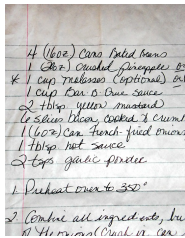 4 (16oz) Cans Baked Beans
1 (8oz) Crushed Pineapple
* 1 cup molasses (optional)
1 cup Bar B Que sauce
2 tblsp yellow mustard
6 slices bacon, cooked & crum
1 (6oz) can french-fried onions
1 tblsp hot sauce
2 tsps garlic powder
1. Preheat oven to 350°
2. Combine all ingredients, bu
of the onions (crush in can